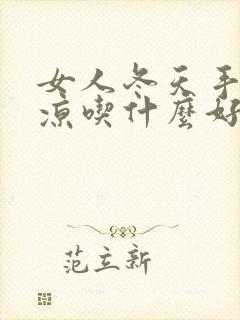 女人冬天手
凉喫什麼好
范立新